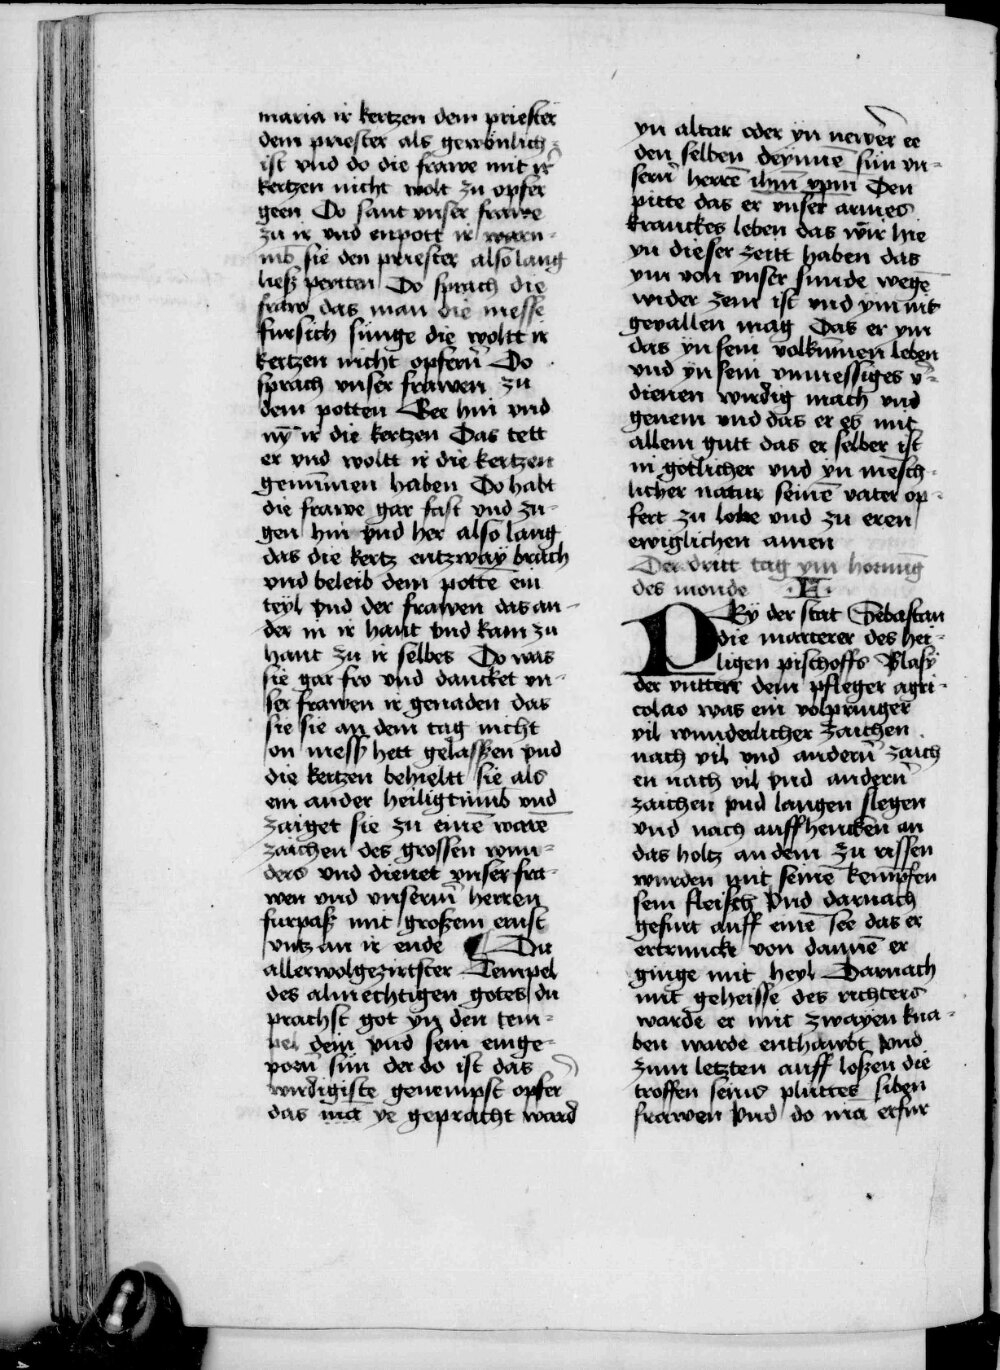 maria ir kertzen dem priester
dem priester als gewönlich
ist vnd do die frawe mit ir̄
kertzen nicht wolt zu opfer
geen Do sant vnser frawe
zu ir vnd enpott ir warn-
mb sie den priester also lang
liesz peyten Do sprach die
fraw das man die messe
fursich sünge die woltt ir
kertzen nicht opfern̄ Do
sprach vnser frawen zu
dem potten Gee hin vnd
nȳ ir die kertzen Das tett
er vnd woltt ir die kertzen
genümmen haben Do habt
die frawe gar fast vnd zu-
gen hin vnd her also lang
das die kertz entzway brach
vnd beleib dem potte ein
teyl vnd der frawen das an-
der in ir hant vnd kam zu
hant zu ir selbes Do was
sie gar fro vnd dancket vn-
ser frawen ir genaden das
sie sie an dem tag nicht
on mess hett gelassen vnd
die kertzen behieltt sie als
ein ander heiligtümb vnd
zaiget sie zu einē warē
zaichen des grossen wun-
ders vnd dienet vnser fra-
wen vnd vnserm̄ herren
furpasz mit groszem ernst
vntz an ir ende Du
allerwolgezirtster Tempel
des almechtigen gotes du
prachst got yn den tem-
pel dein vnd sein einge-
porn̄ sün der do ist das
wirdigiste genempst opfer
das mā ye gepracht ward
yn altar oder yn newer ee
den selben deynnē sün vn-
sern̄ herrē ihm̄ xpm̄ Den
pitte das er vnser armes
kranckes leben das wir hie
yn dieser zeitt haben das
ym von vnser sunde wegē
wider zem ist vnd ym nit
geuallen mag Das er ym
das yn sein volkümmen leben
vnd yn sein vnmessiges v̄-
dienen wirdig mach vnd
genem vnd das er es mit
allem gutt das er selber ist
in götlicher vnd yn mēsch-
licher natur seinē vater op-
fert zu lobe vnd zu eren
ewiglichen amen
Der dritt tag ym hornūg
des monde
PEy der stat Sebastan
die marterer des hei-
ligen pischoffs Blasy
der vntterr dem pfleger agri-
colao was ein volpringer
vil wunderlicher zaichen
nach vil vnd andern̄ zaich
en nach vil vnd andern̄
zaichen vnd langen slegen
vnd nach auffhencken an
das holtz an dem zu rissen
wurden mit seinē kempfen
sein fleisch vnd darnach
gefurt auff einē see das er
ertrinncke von dannē er
ginge mit heyl Darnach
mit geheisse des richters
warde er mit zwayen kna-
ben warde enthawbt vnd
zum letzten auff loszen die
troffen seins pluttes siben
frawen vnd do mā erfur